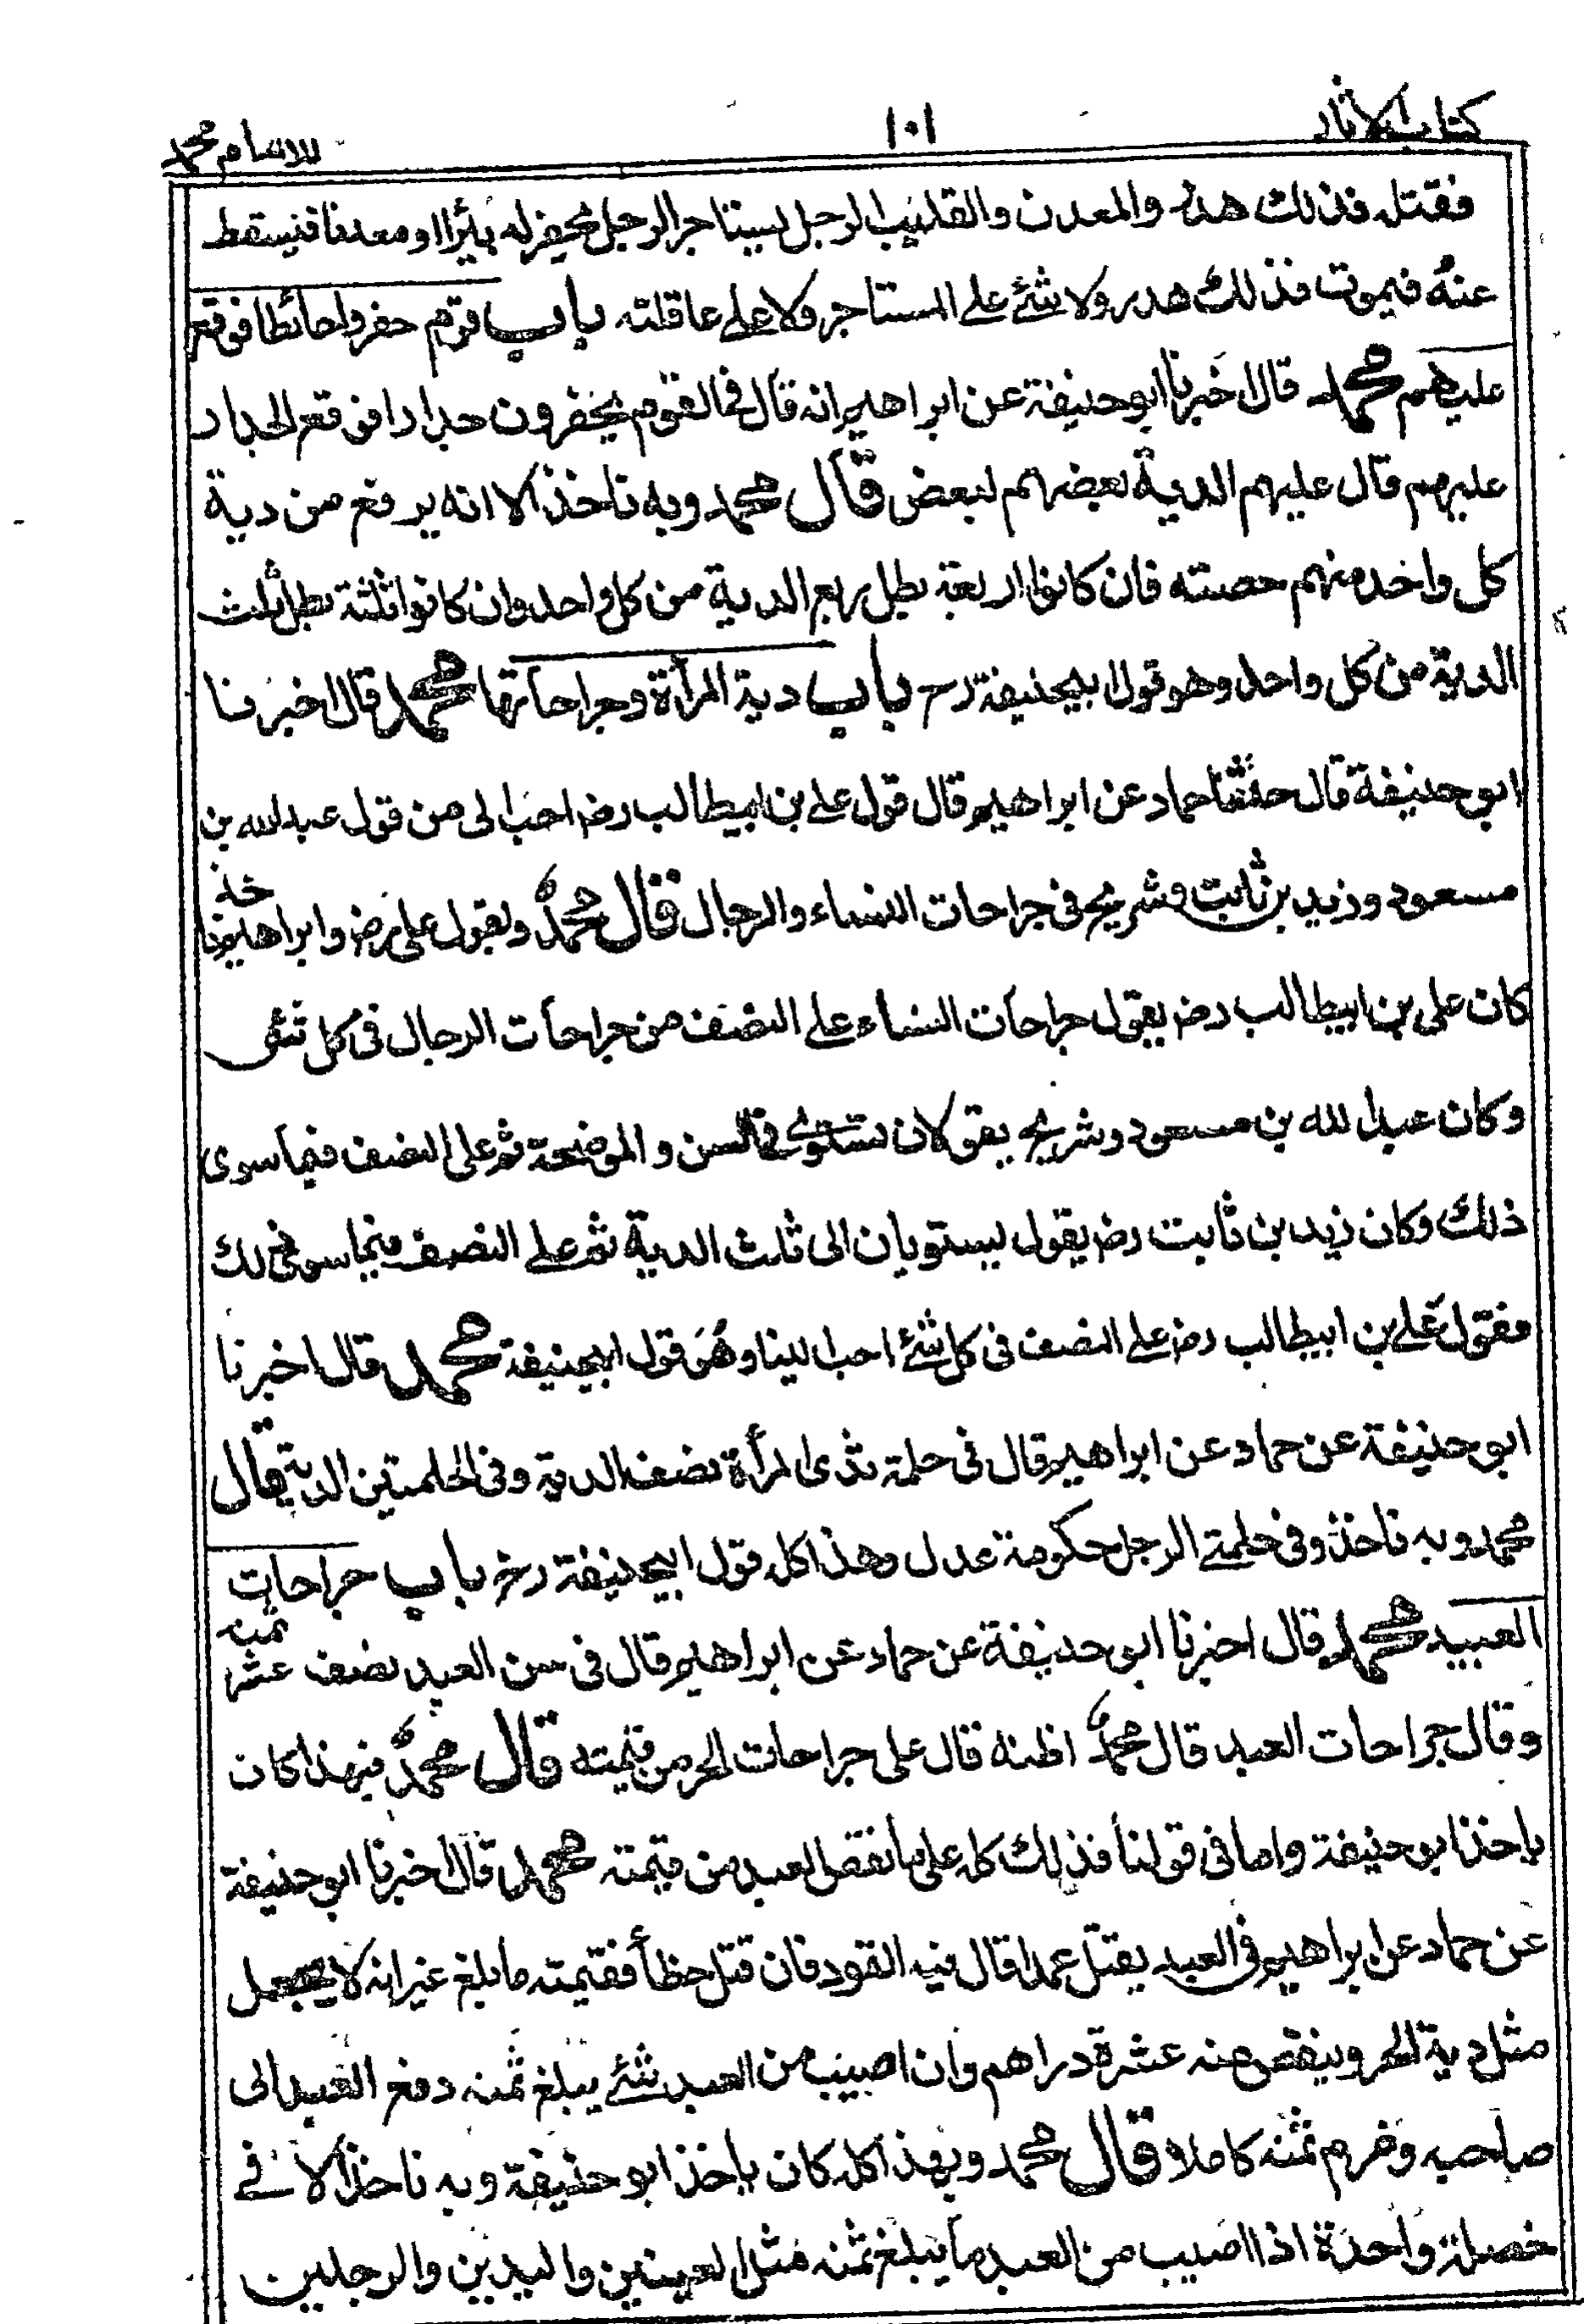 كتاب الاثار ١٠١ للامام محمد
فقتله فذلك هدر والمعدن والقليب الرجل يستاجر الرجل يحفر له بئرا او معدنا فيسقط
عنه فيموت فذلك هدر ولا شئ على المستاجر ولا على عاقلته باب قوم حفروا حائطا فوقع
عليهم محمد قال اخبرنا ابو حنيفة عن ابراهيم انه قال فى القوم يحفرون جدارا فوقع الجدار
عليهم قال عليهم الدية بعضهم لبعض قال محمد وبه ناخذ الا انه يرفع من دية
كل واحد منهم حصته فان كانوا اربعة بطل ربع الدية من كل واحد وان كانوا ثلثة بطل ثلث
الدية من كل واحد وهو قول ابيحنيفة رح باب دية المرأة وجراحاتها محمد قال اخبرنا
ابو حنيفة قال حدثنا حماد عن ابراهيم قال قول على بن ابيطالب رض احب الى من قول عبد الله بن
مسعود وزيد بن ثابت وشريح فى جراحات النساء والرجال قال محمد وبقول على رض وابراهيم ناخذ
كان على بن ابيطالب رض يقول جراحات النساء على النصف من جراحات الرجال فى كل شئ
وكان عبد الله بن مسعود وشريح يقولان تستوى فى السن والموضحة ثم على النصف فيما سوى
ذلك وكان زيد بن ثابت رض يقول يستويان الى ثلث الدية ثم على النصف فيما سوى ذلك
فقول على بن ابيطالب رض على النصف فى كل شئ احب الينا وهو قول ابيحنيفة محمد قال اخبرنا
ابو حنيفة عن حماد عن ابراهيم قال فى حلمة ثدى المرأة نصف الدية وفى الحلمتين الدية قال
محمد وبه ناخذ وفى حلمتى الرجل حكومة عدل وهذا كله قول ابيحنيفة رح باب جراحات
العبيد محمد قال اخبرنا ابو حنيفة عن حماد عن ابراهيم قال فى سن العبد نصف عشر ثمنه
وقال جراحات العبد قال محمد اظنه قال على جراحات الحر من قيمته قال محمد فبهذا كان
ياخذ ابو حنيفة واما فى قولنا فذلك كله على ما نقص العبد من قيمته محمد قال اخبرنا ابو حنيفة
عن حماد عن ابراهيم فى العبد يقتل عمدا قال فيه القود فان قتل خطأ فقيمته ما بلغ غير انه لا يجعل
مثل دية الحر وينقص عنه عشرة دراهم وان اصيب من العبد شئ يبلغ ثمنه دفع العبد الى
صاحبه وغرم ثمنه كاملا قال محمد وبهذا كله كان ياخذ ابو حنيفة وبه ناخذ الا فى
خصلة واحدة اذا اصيب من العبد ما يبلغ ثمنه مثل العينين واليدين والرجلين